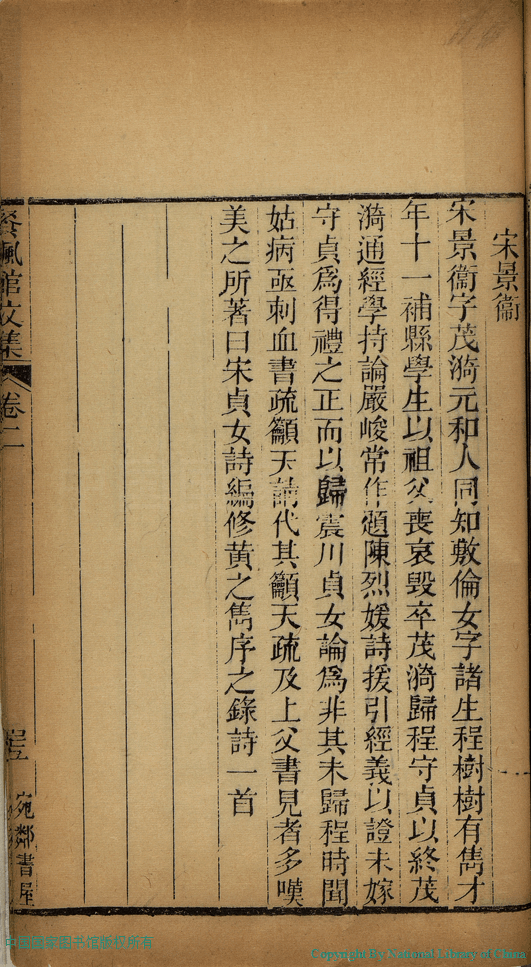 宋景衞
宋景衞字茂漪元和人同知敷倫女字諸生程樹樹有雋才
年十一補縣學生以祖父喪哀毀卒茂漪歸程守貞以終茂
漪通經學持論嚴峻常作題陳烈媛詩援引經義以證未嫁
守貞爲得禮之正而以歸震川貞女論爲非其未歸程時聞
姑病亟刺血書疏籲天請代其籲天疏及上父書見者多嘆
美之所著曰宋貞女詩編修黄之雋序之錄詩一首
餐楓館文集
卷二
宛鄰書屋
中国国家图书馆版权所有
Copyright By National Library of China